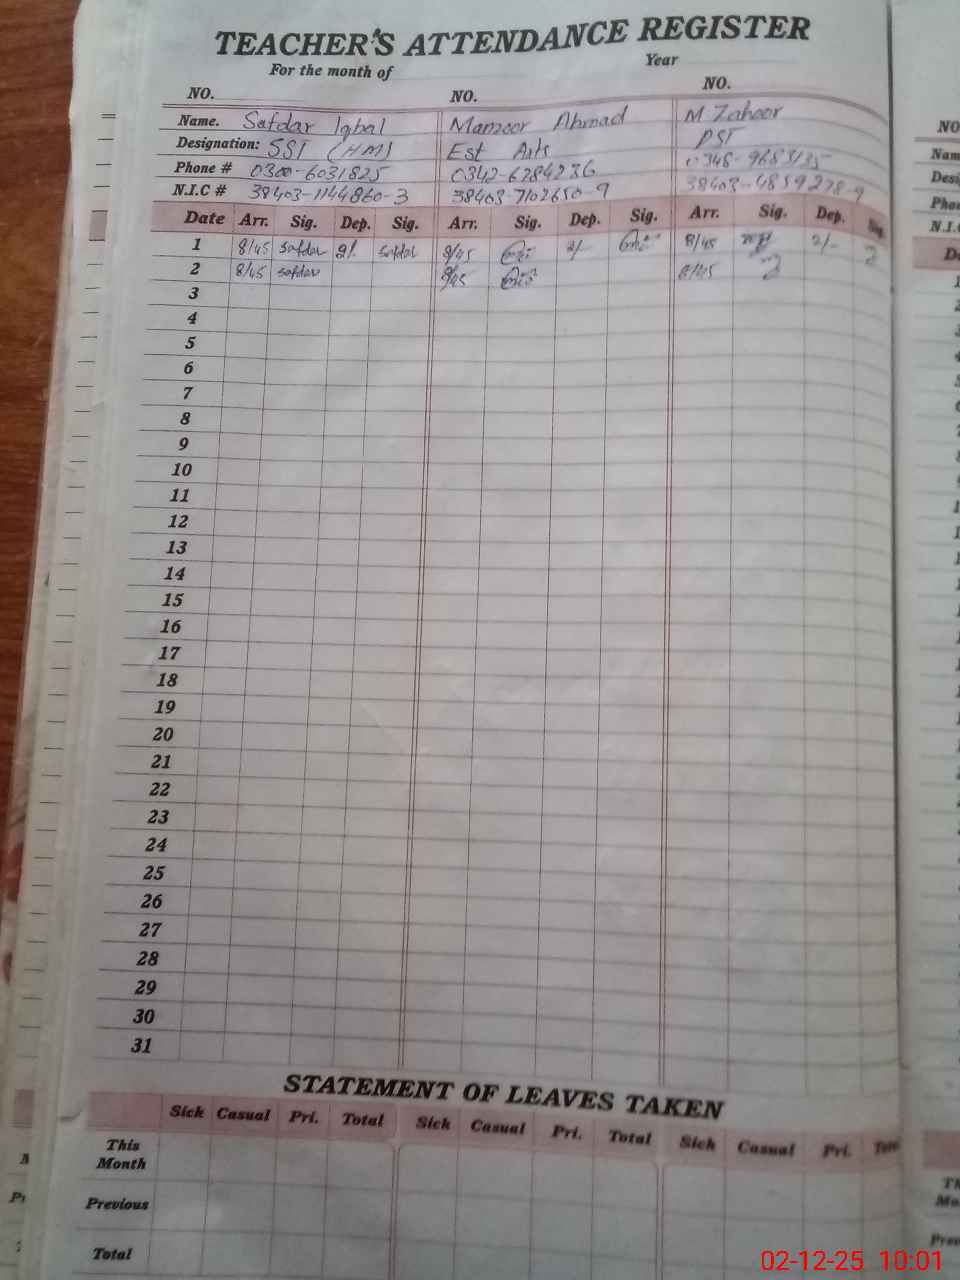 TEACHER'S ATTENDANCE REGISTER
For the month of Year
NO. NO. NO.
Name. Safdar Iqbal Manzoor Ahmad M Zahoor
Designation: SST (HM) Est Arts PST
Phone # 0300-6031825 0342-6784236 0348-9683135
N.I.C # 38403-1144860-3 38403-7102650-9 38403-4859278-9
Date Arr. Sig. Dep. Sig. Arr. Sig. Dep. Sig. Arr. Sig. Dep. Sig.
1 8/45 Safdar 2/- Safdar 8/45 2/- 8/45 2/-
2 8/45 Safdar 8/45 8/45
3
4
5
6
7
8
9
10
11
12
13
14
15
16
17
18
19
20
21
22
23
24
25
26
27
28
29
30
31
STATEMENT OF LEAVES TAKEN
Sick Casual Pri. Total Sick Casual Pri. Total Sick Casual Pri.
This Month
Previous
Total
02-12-25 10:01